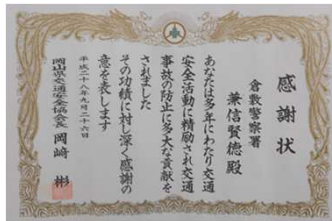 感謝状
倉敷警察署
兼信賢徳殿
あなたは多年にわたり交通
安全活動に精励され交通
事故の防止に多大な貢献を
されました
その功績に対し深く感謝の
意を表します
平成二十八年九月二十六日
岡山県交通安全協会長 岡﨑 彬